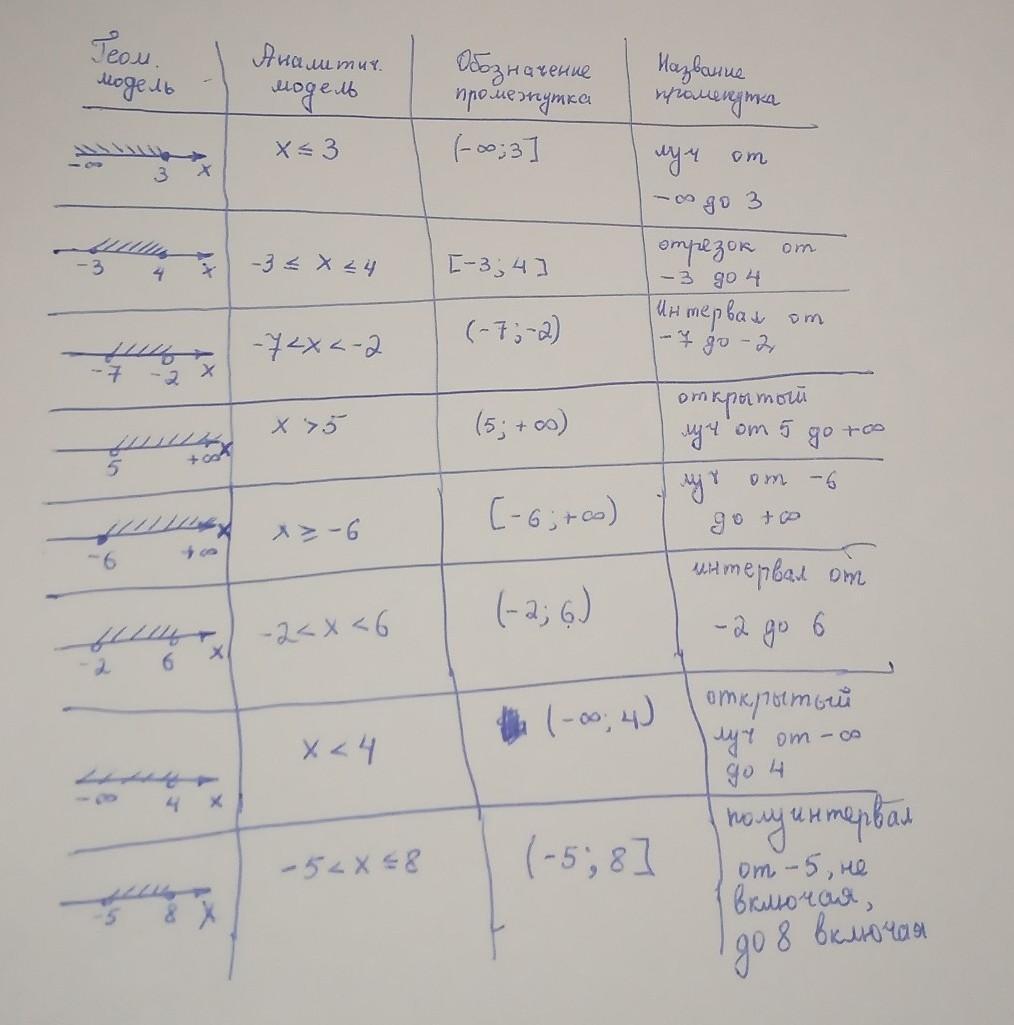 Геом. модель
Аналитич. модель
Обозначение промежутка
Название промежутка
-∞ 3 x
x ≤ 3
(-∞; 3]
луч от
-∞ до 3
-3 4 x
-3 ≤ x ≤ 4
[-3; 4]
отрезок от
-3 до 4
-7 -2 x
-7 < x < -2
(-7; -2)
Интервал от
-7 до -2
5 +∞ x
x > 5
(5; +∞)
открытый
луч от 5 до +∞
-6 +∞ x
x ≥ -6
[-6; +∞)
луч от -6
до +∞
-2 6 x
-2 < x < 6
(-2; 6)
интервал от
-2 до 6
-∞ 4 x
x < 4
(-∞; 4)
открытый
луч от -∞
до 4
-5 8 x
-5 < x ≤ 8
(-5; 8]
полуинтервал
от -5, не
включая,
до 8 включая